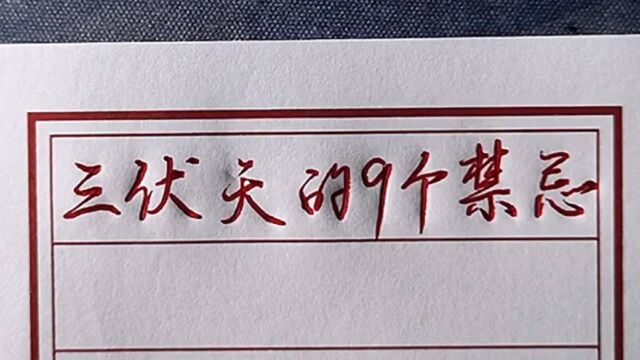 三伏天的9个禁忌